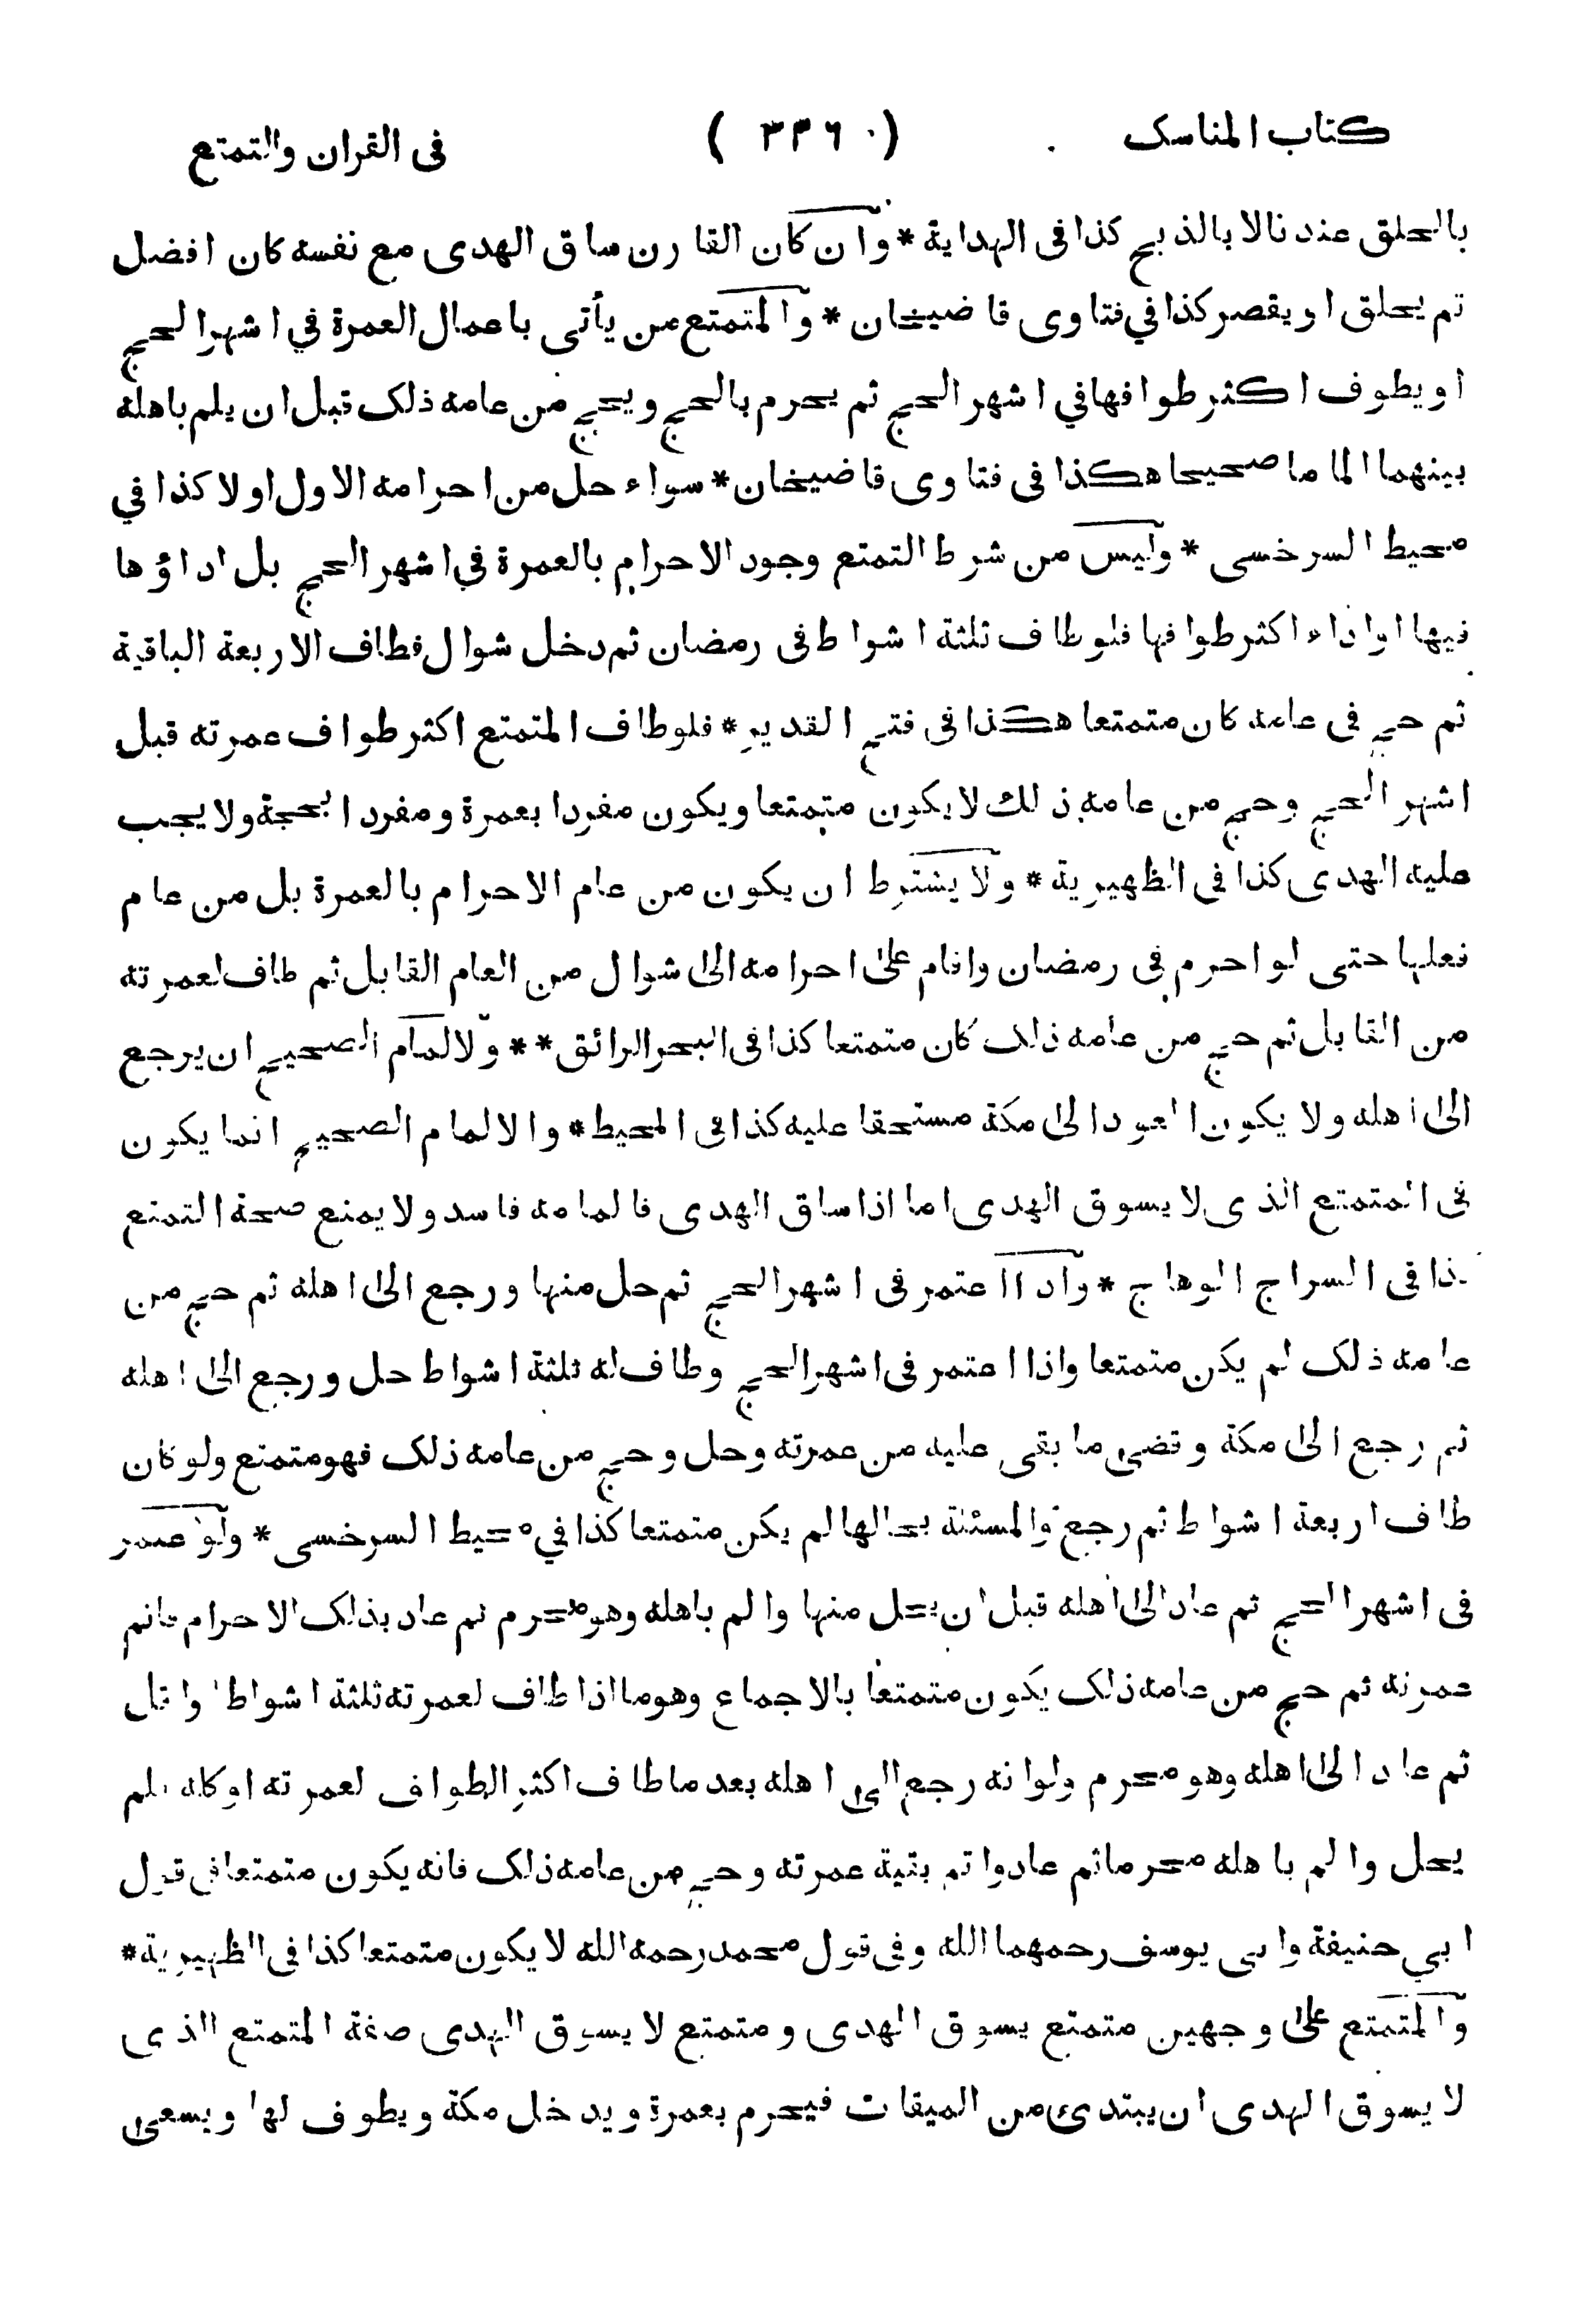 كتاب المناسك ( ٣٣٦ ) فى القران والتمتع
بالحلق عندنا لا بالذبح كذا فى الهداية * وان كان القارن ساق الهدى مع نفسه كان افضل
ثم يحلق او يقصر كذا في فتاوى قاضيخان * والمتمتع من يأتى باعمال العمرة في اشهر الحج
او يطوف اكثر طوافها في اشهر الحج ثم يحرم بالحج و يحج من عامه ذلك قبل ان يلم باهله
بينهما الماما صحيحا هكذا فى فتاوى قاضيخان * سواء حل من احرامه الاول او لا كذا في
محيط السرخسى * وليس من شرط التمتع وجود الاحرام بالعمرة في اشهر الحج بل اداؤها
فيها او اداء اكثر طوافها فلو طاف ثلثة اشواط فى رمضان ثم دخل شوال فطاف الاربعة الباقية
ثم حج فى عامه كان متمتعا هكذا فى فتح القدير * فلو طاف المتمتع اكثر طواف عمرته قبل
اشهر الحج وحج من عامه ذلك لا يكون متمتعا ويكون مفردا بعمرة ومفردا بحجة ولا يجب
عليه الهدى كذا فى الظهيرية * ولا يشترط ان يكون من عام الاحرام بالعمرة بل من عام
فعلها حتى لو احرم فى رمضان واقام على احرامه الى شوال من العام القابل ثم طاف لعمرته
من القابل ثم حج من عامه ذلك كان متمتعا كذا فى البحر الرائق * * ولالمام الصحيح ان يرجع
الى اهله ولا يكون العود الى مكة مستحقا عليه كذا فى المحيط * والالمام الصحيح انما يكون
فى المتمتع الذى لا يسوق الهدى اما اذا ساق الهدى فالمامه فاسد ولا يمنع صحة التمتع
كذا فى السراج الوهاج * واذا اعتمر فى اشهر الحج ثم حل منها ورجع الى اهله ثم حج من
عامه ذلك لم يكن متمتعا واذا اعتمر فى اشهر الحج وطاف له ثلثة اشواط حل ورجع الى اهله
ثم رجع الى مكة وقضى ما بقى عليه من عمرته وحل وحج من عامه ذلك فهو متمتع ولو كان
طاف اربعة اشواط ثم رجع والمسئلة بحالها لم يكن متمتعا كذا في محيط السرخسى * ولو اعتمر
فى اشهر الحج ثم عاد الى اهله قبل ان يحل منها والم باهله وهو محرم ثم عاد بذلك الاحرام فاتم
عمرته ثم حج من عامه ذلك يكون متمتعا بالاجماع وهو ما اذا طاف لعمرته ثلثة اشواط او اقل
ثم عاد الى اهله وهو محرم ولو انه رجع الى اهله بعد ما طاف اكثر الطواف لعمرته او كله ولم
يحل والم باهله محرما ثم عاد واتم بقية عمرته وحج من عامه ذلك فانه يكون متمتعا فى قول
ابي حنيفة وابى يوسف رحمهما الله وفى قول محمد رحمه الله لا يكون متمتعا كذا فى الظهيرية *
والمتمتع على وجهين متمتع يسوق الهدى ومتمتع لا يسوق الهدى صفة المتمتع الذى
لا يسوق الهدى ان يبتدئ من الميقات فيحرم بعمرة ويدخل مكة ويطوف لها ويسعى